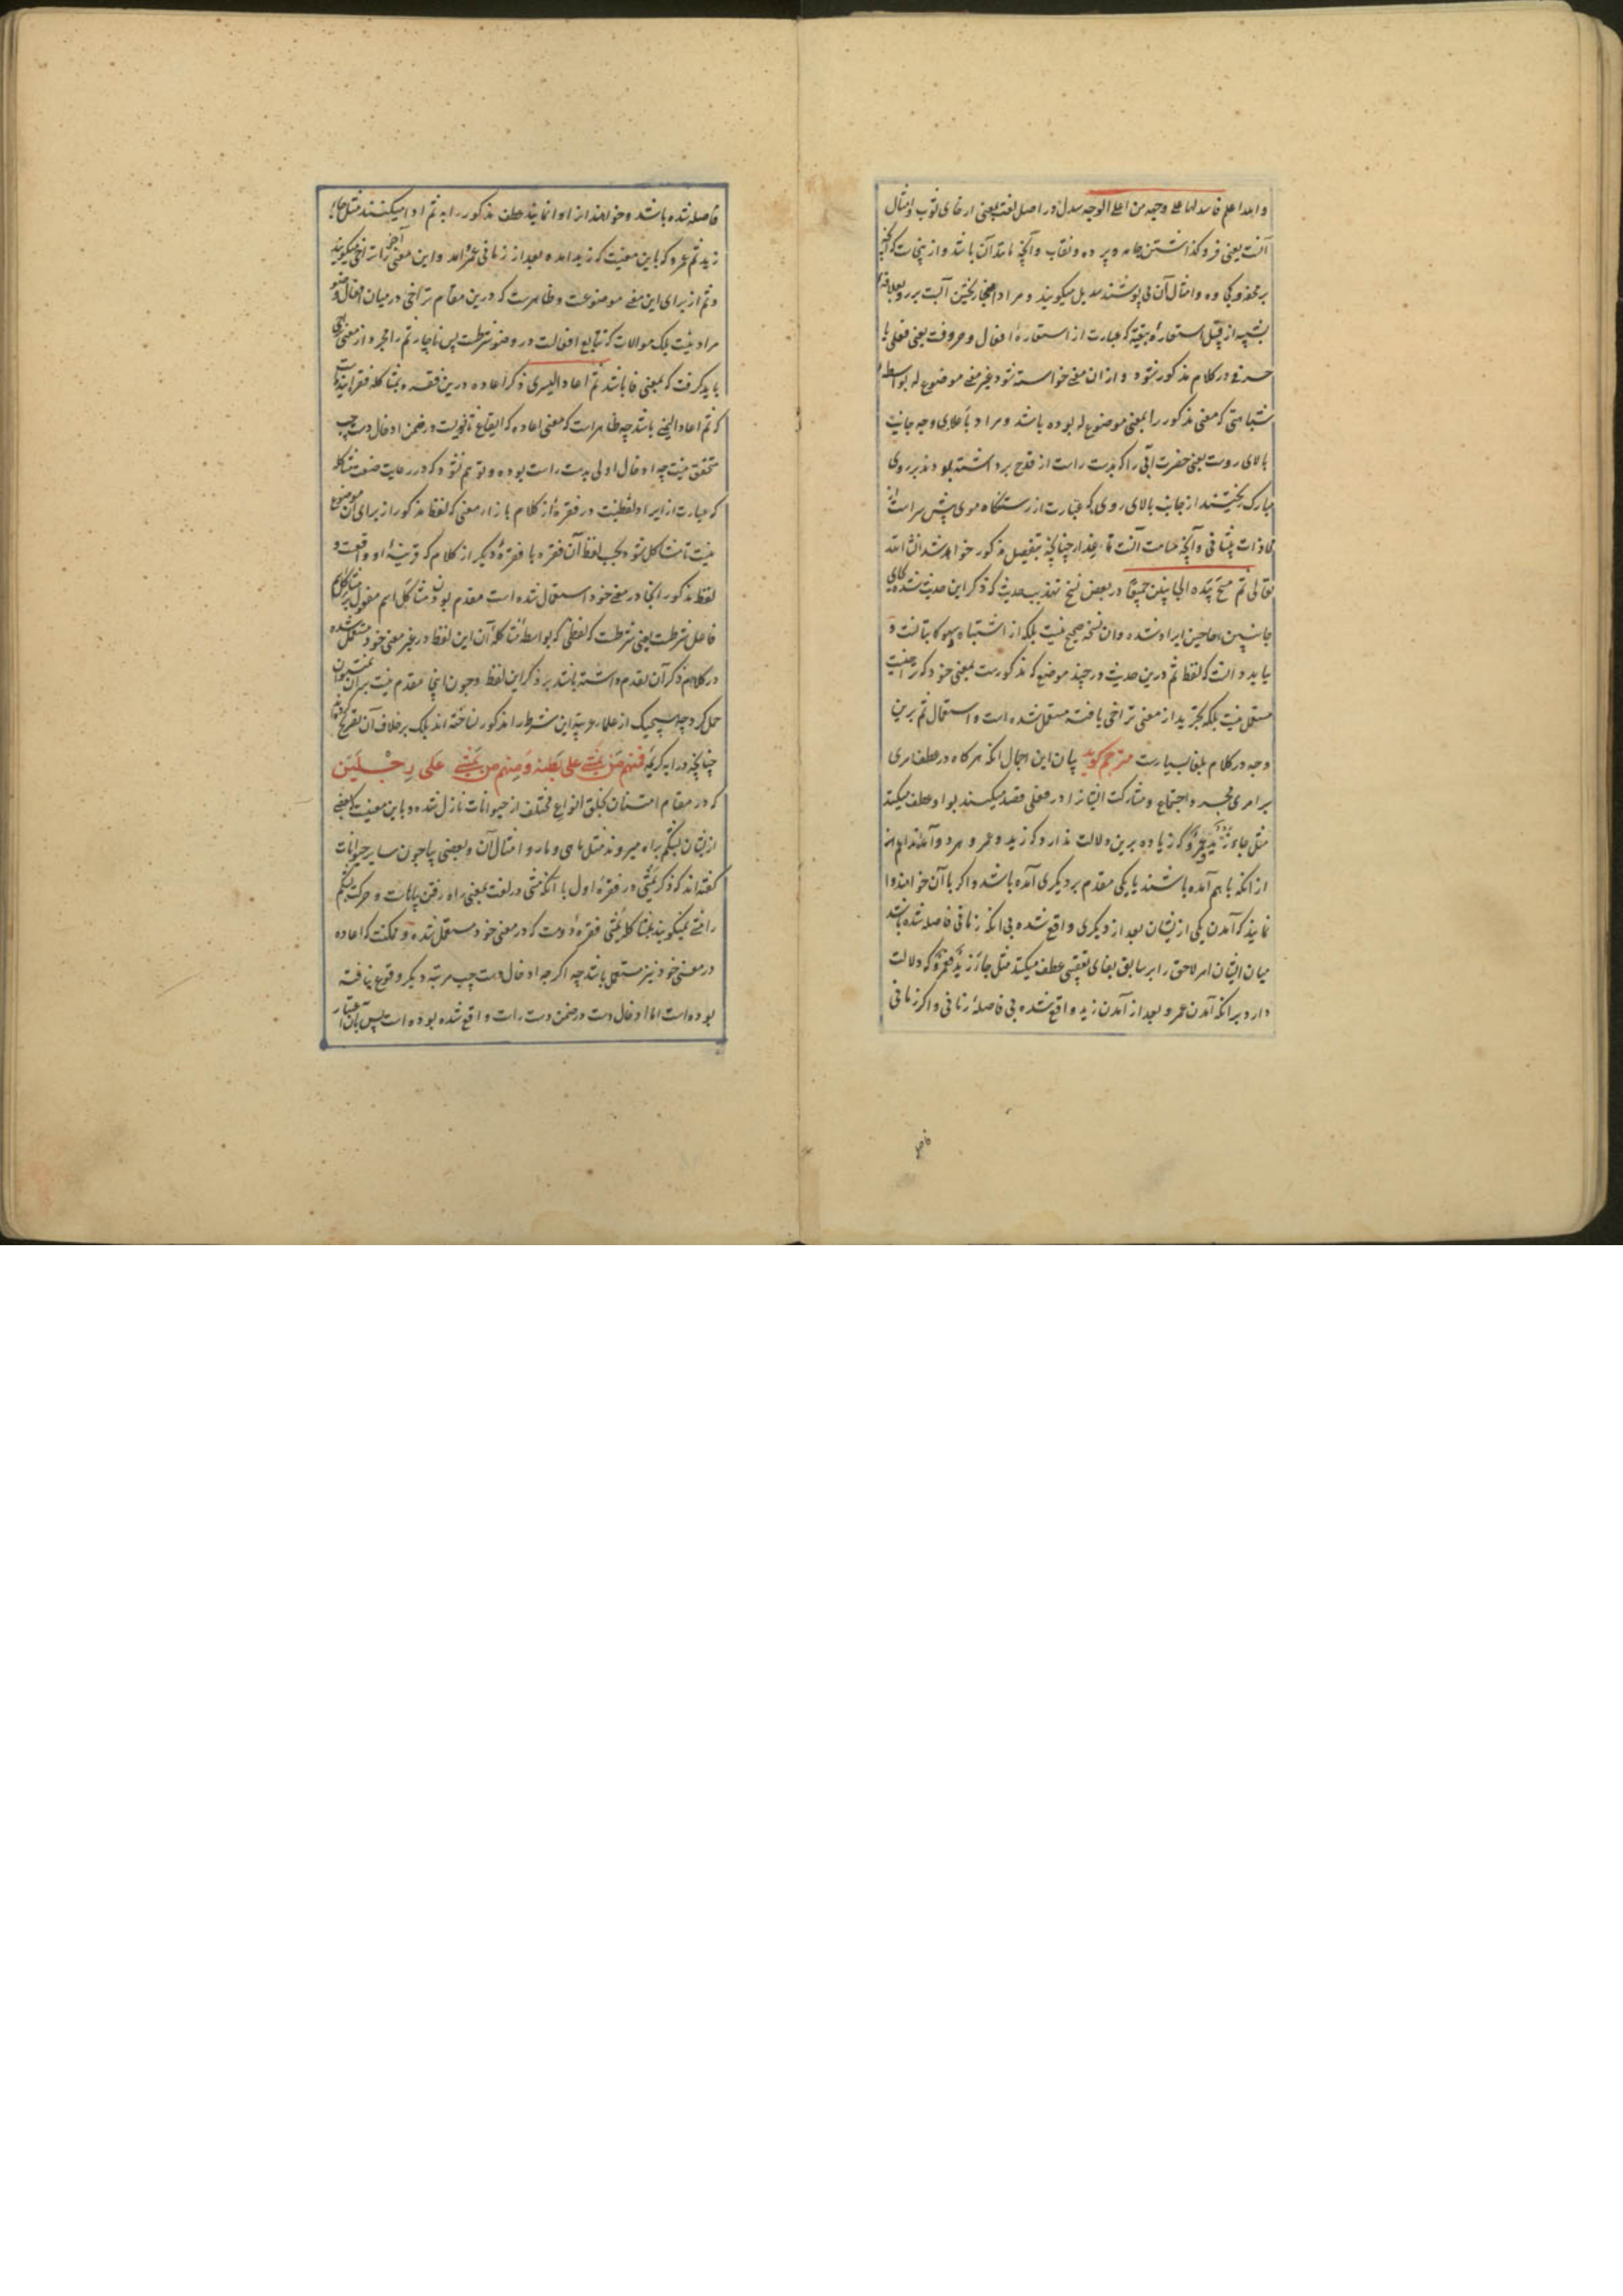 والله اعلم فاسدلها علی وجهه من اعلی الوجه سدل در اصل لغت بمعنی ارخای ثوب و امثال
آنست یعنی فرو گذاشتن جامه و پرده و نقاب و آنچه مانند آن باشد و از اینجاست که آنچه
بر محفه و کجاوه و امثال آن می پوشند سدیل میگویند و مراد اینجا ریختن آبست بر رو بعلاقه
تشبیه از قبیل استعاره تبعیه که عبارت از استعاره افعال و حروفست یعنی فعلی یا
حرفی در کلام مذکور شود و از ان معنی خواسته شود غیر معنی موضوع له بواسطه
شباهتی که معنی مذکور را بمعنی موضوع له بوده باشد و مراد باعلای وجه جانب
بالای روست یعنی حضرت آبی را که بدست راست از قدح برداشته بودند بر روی
مبارک ریختند از جانب بالای روی که عبارت از رستنگاه موی پیش سر است از
محاذات پیشانی و آنچه مسامت آنست تا عذار چنانچه بتفصیل مذکور خواهد شد ان شاء الله
تعالی ثم مسح بیده الجانبین جمیعا در بعض نسخ تهذیب حدیث که ذکر این حدیث شده بجای
جانبین حاجبین ایراد شده و ان نسخه صحیح نیست بلکه از اشتباه و سهو کاتبانست و
باید دانست که لفظ ثم درین حدیث در چند موضع که مذکورست بمعنی خود که تراخیست
مستعمل نیست بلکه بتجرید از معنی تراخی یافته مستعمل شده است و استعمال ثم برین
وجه در کلام بلغا بسیارست مترجم گوید بیان این اجمال انکه هر گاه در عطف امری
بر امری مجرد اجتماع و مشارکت ایشانرا در فعلی قصد میکنند بواو عطف میکنند
مثل جاء زید و عمرو که زیاده برین دلالت ندارد که زید و عمرو هر دو آمده‌اند اعم از
از انکه با هم آمده باشند یا یکی مقدم بر دیگری آمده باشد و اگر با آن خواهند ادا
نمایند که آمدن یکی از ایشان بعد از دیگری واقع شده بی انکه زمانی فاصله شده باشد
میان ایشان امر لاحق را بر سابق بفای تعقیبی عطف میکنند مثل جاء زید فعمرو که دلالت
دارد بر انکه آمدن عمرو بعد از آمدن زید واقع شده بی فاصله زمانی و اگر زمانی
فاصله شده باشد و خواهند ان را ادا نمایند عطف مذکور را به ثم ادا میکنند مثل جاء
زید ثم عمرو که باین معنیست که زید آمده بعد از زمانی عمرو آمد و این معنی آخر را تراخی میگویند
و ثم از برای این معنی موضوعست و ظاهرست که درین مقام تراخی در میان افعال وضو
مراد نیست بلکه موالات که تتابع افعالست در وضو شرطست پس ناچار ثم را مجرد از معنی تراخی
باید گرفت که بمعنی فا باشد ثم اعاد الیسری ذکر اعاده درین فقره بمشاکله فقره
که ثم اعاد الیمنی باشد چه ظاهر است که معنی اعاده که ایقاع ثانویست در ضمن ادخال دست چپ
متحقق نیست چه ادخال اولی بدست راست بوده و توهم نشود که در رعایت صنعت مشاکله
که عبارت از ایراد لفظیست در فقره از کلام بازاء معنی که لفظ مذکور از برای آن موضوع
نیست تا مشاکل شود بحسب لفظ آن فقره با فقره دیگر از کلام که قرینه او واقعست و
لفظ مذکور انجا در معنی خود استعمال شده است مقدم بودن مشاکَل اسم مفعول بر مشاکِل اسم
فاعل شرطست یعنی شرطست که لفظی که بواسطه مشاکله آن این لفظ در غیر معنی خود مستعمل شده
در کلام ذکر آن تقدم داشته باشد بر ذکر این لفظ و چون اینجا مقدم نیست بر ان نمیتوان
حمل کرد چه هیچیک از علماء عربیه این شرط را مذکور نساخته اند بلکه بر خلاف آن تصریح کرده‌اند
چنانچه در ایه کریمه فَمِنهُم مَن یَمشی عَلی بَطنِه وَ مِنهُم مَن یَمشی عَلی رِجْلَیْن
که در مقام امتنان بخلق انواع مختلف از حیوانات نازل شده و باین معنیست که بعضی
از ایشان بشکم براه میروند مثل ماهی و مار و امثال آن و بعضی بپا چون سایر حیوانات
گفته اند که ذکر یمشی در فقره اول با انکه مشی در لغت بمعنی راه رفتن بپاهاست و حرکت بشکم
را مشی نمیگویند بمشاکله یمشی فقره دومست که در معنی خود مستعمل شده و ممکنست که اعاده
در معنی خود نیز مستعمل باشد چه اگرچه ادخال دست چپ مرتبه دیگر وقوع نیافته
بوده است اما ادخال دست در ضمن دست راست واقع شده بوده است پس باین اعتبار